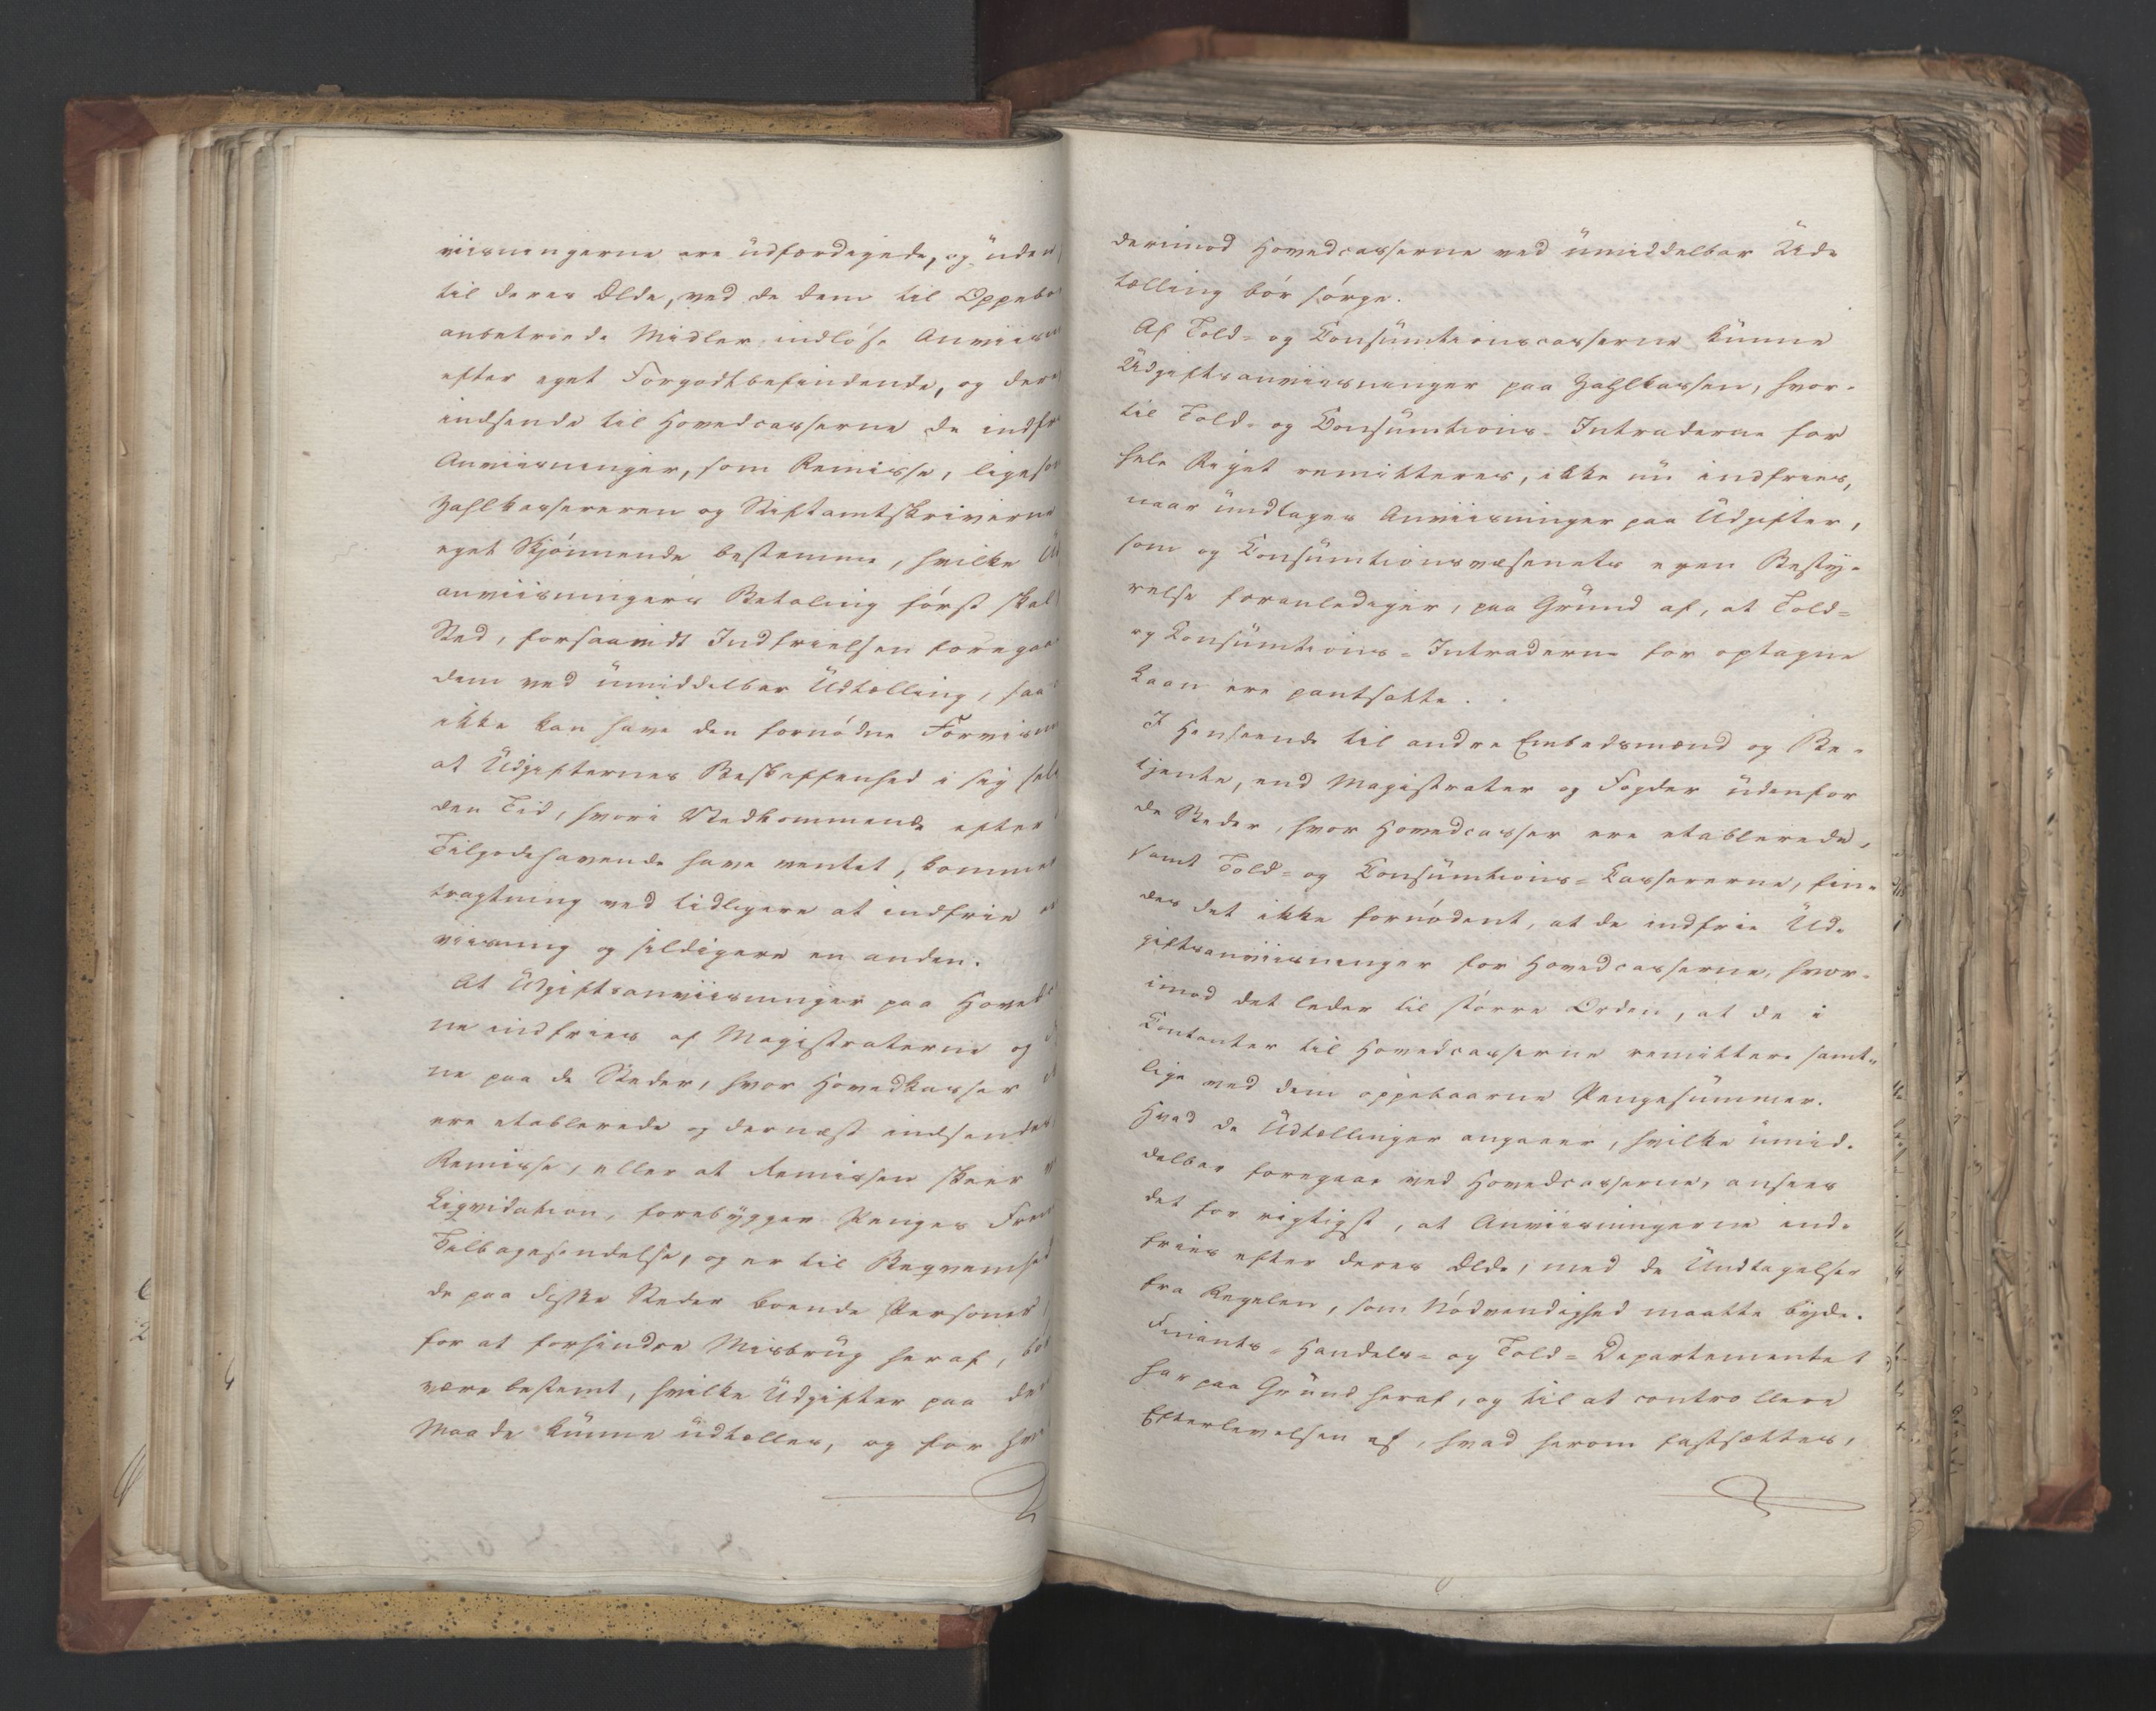 viisningerne ere udfærdigede, og uden
til deres Ælde, ved de dem til Oppebø
anbetroede Midler indløse Anviisn
efter eget Forgodtbefindende, og der
indsende til Hovedcasserne de indfr
Anviisninger, som Remisse, ligesom
Zahlkassereren og Stiftamtskriverne
eget Skjønnende bestemme, hvilke Ud
anviisningers Betaling først skal
Sted, forsaavidt Indfrielsen foregaa
dem ved umiddelbar Udtælling, saa
ikke kan have den fornødne Forvisn
at Udgifternes Beskaffenhed i sig selv
den Tid, hvori Vedkommende efter
Tilgodehavende have ventet, komme
tragtning ved tidligere at indfrie
viisning og sildigere en anden.
At Udgiftsanviisninger paa Hovedc
ne indfries af Magistraterne og
ne paa de Steder, hvor Hovedkasser
ere etablerede og dernæst indsendes
Remisse, eller at Remissen skeer
Liqvidation, forebygger Penges Frem
Tilbagesendelse, og er til Beqvemhed
de paa disse Steder boende Personer
for at forhindre Misbrug heraf, bør
være bestemt, hvilke Udgifter paa de
Maade kunne udtælles, og for hv
derimod Hovedcasserne ved umiddelbar Ud-
tælling bør sørge.
Af Told- og Consumtionscasserne kunne
Udgiftsanviisninger paa Zahlkassen, hvor-
til Told- og Consumtions-Intraderne for
hele Riget remitteres, ikke nu indfries,
naar undtages Anviisninger paa Udgifter,
som og Consumtionsvæsenets egen Besty-
relse foranlediger, paa Grund af, at Told-
og Consumtions-Intraderne for optagne
Laan ere pantsatte.
I Henseende til andre Embedsmænd og Be-
tjente, end Magistrater og Fogder udenfor
de Steder, hvor Hovedcasser ere etablerede,
samt Told- og Consumtions-Kassererne, fin-
des det ikke fornødent, at de indfrie Ud-
giftsanviisninger for Hovedcasserne, hvor-
imod det leder til større Orden, at de i
Contanter til Hovedcasserne remittere samt-
lige ved dem oppebaarne Pengesummer.
Hvad de Udtællinger angaaer, hvilke umid-
delbar foregaae ved Hovedcasserne, ansees
det for rigtigst, at Anviisningerne ind-
fries efter deres Ælde, med de Undtagelser
fra Regelen, som Nødvendighed maatte byde.
Finants- Handels- og Told-Departementet
har paa Grund heraf, og til at controllere
Efterlevelsen af, hvad herom fastsættes,